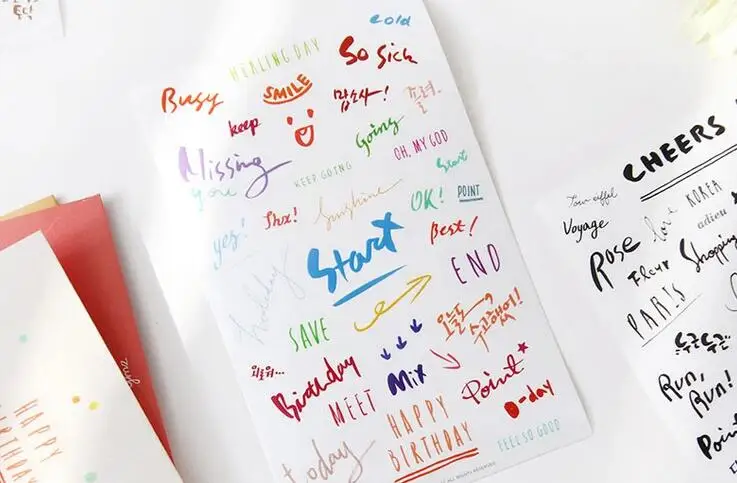 cold
HEALING DAY
So Sick
Busy
SMILE
맙소사!
졸려.
keep
Going
OH, MY GOD
Missing
you
KEEP GOING
Start
yes!
Shx!
Sunshine
OK!
POINT
Start
Best!
holiday
END
SAVE
오늘도
수고했어!
외로워...
Birthday
Mix
MEET
Point
D-day
today
HAPPY
BIRTHDAY
FEEL SO GOOD
ALL RIGHTS RESERVED
HAPPY
BIRTHDAY
CHEERS
Tour eiffel
Voyage
love
KOREA
adieu
Rose
Fleur
Shopping
PARIS
두근두근
Run,
Run!
Point